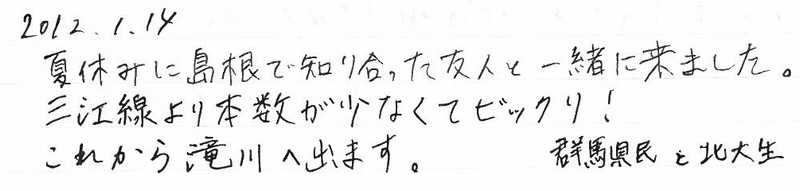 2012.1.14
夏休みに島根で知り合った友人と一緒に来ました。
三江線より本数が少なくてビックリ!
これから滝川へ出ます。 群馬県民と北大生